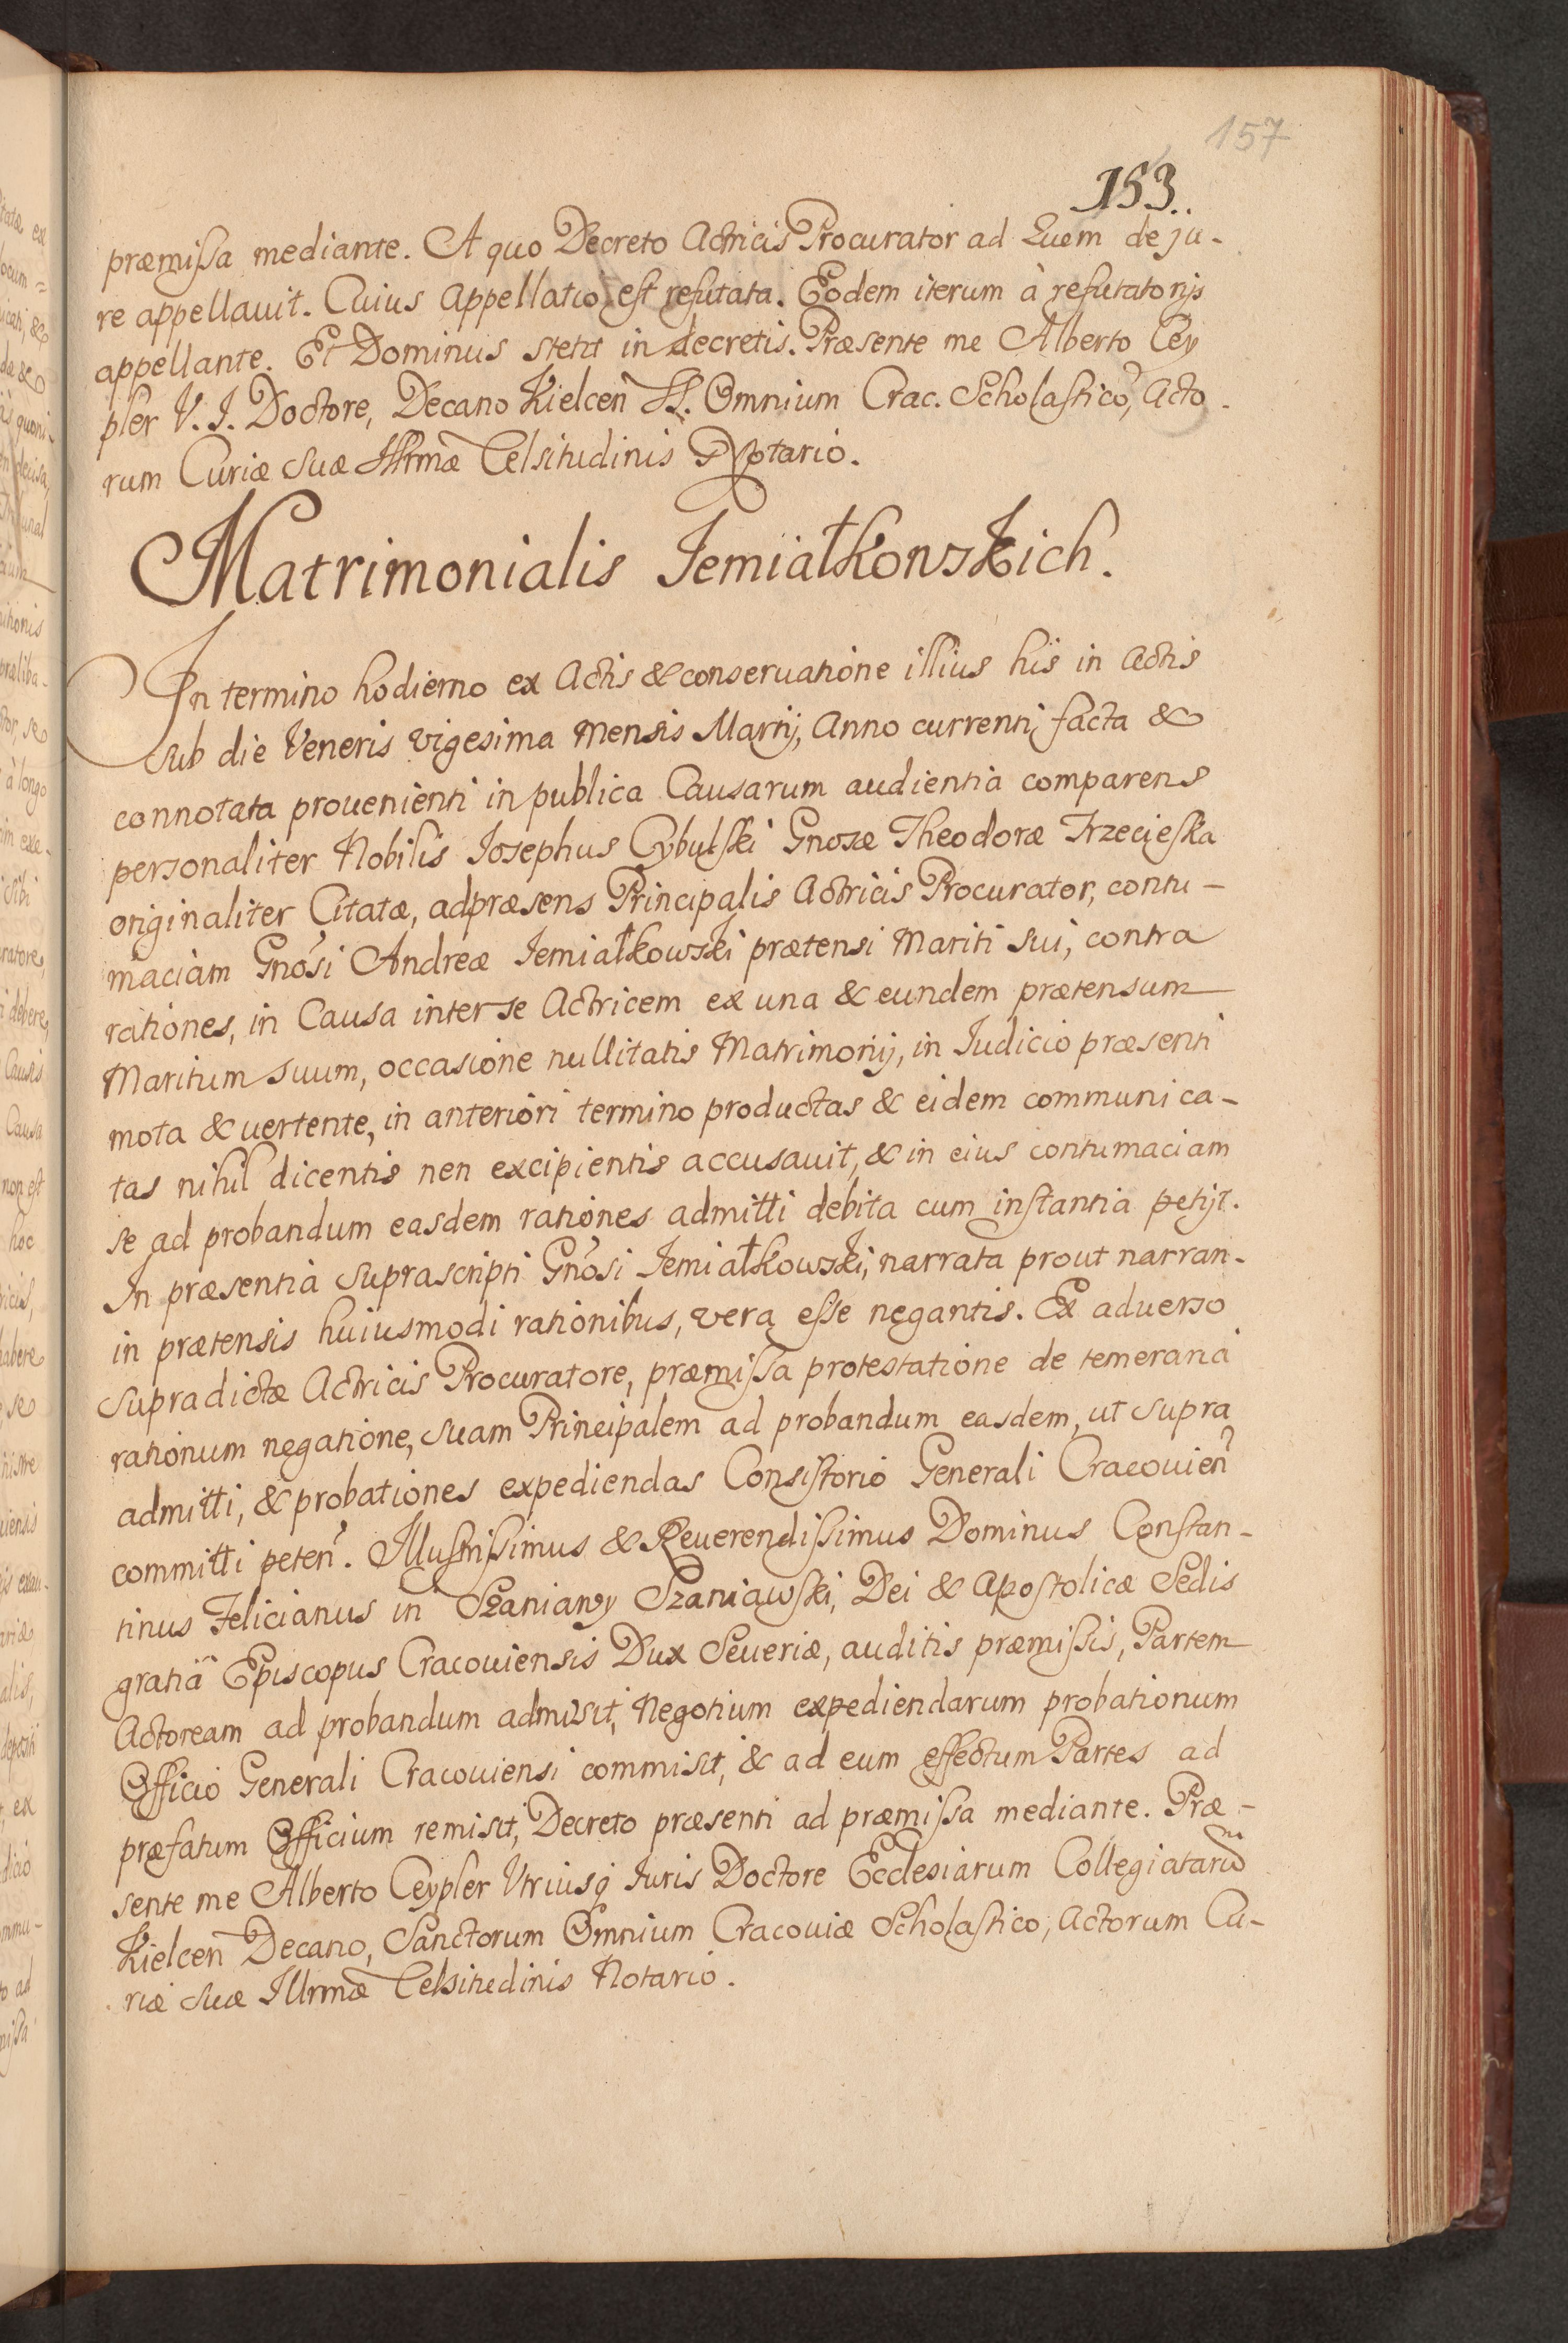 157
153.
præmissa mediante. A quo Decreto Actricis Procurator ad Quem de ju-
re appellauit. Cuius Appellatio est refutata. Eodem iterum à refutatorijs
appellante. Et Dominus stetit in decretis. Præsente me Alberto Cey
pler V. I. Doctore, Decano Kielcen̄ SS. Omnium Crac. Scholastico, Acto-
rum Curiæ Suæ Illrmæ Celsitudinis Notario.
Matrimonialis Jemiałkowskich.
In termino hodierno ex Actis & conseruatione illius his in Actis
sub die Veneris vigesima Mensis Martij, Anno currenti, facta &
connotata prouenienti in publica Causarum audientia comparens
personaliter Nobilis Josephus Cybulski Gnosæ Theodoræ Trzecieska
originaliter Citatæ, adpræsens Principalis Actricis Procurator, contu-
maciam Gnosi Andreæ Jemiałkowski prætensi Mariti sui, contra
rationes, in Causa inter se Actricem ex una & eundem prætensum
Maritum suum, occasione nullitatis Matrimonij, in Iudicio præsenti
mota & uertente, in anteriori termino productas & eidem communica-
tas nihil dicentis nen excipientis accusauit, & in eius contumaciam
se ad probandum easdem rationes admitti debita cum instantia petijt.
In præsentia suprascripti Gnosi Jemiałkowski, narrata prout narran-
in prætensis huiusmodi rationibus, vera esse negantis. Ex aduerso
supradictæ Actricis Procuratore, præmissa protestatione de temeraria
rationum negatione, suam Principalem ad probandum easdem, ut supra
admitti, & probationes expediendas Consistorio Generali Cracouien̄
committi peten̄. Illustrissimus & Reuerendissimus Dominus Constan-
tinus Felicianus in Szaniawy Szaniawski, Dei & Apostolicæ Sedis
gratiâ Episcopus Cracouiensis Dux Seueriæ, auditis præmissis, Partem
Actoream ad probandum admisit, Negotium expediendarum probationum
Officio Generali Cracouiensi commisit, & ad eum effectum Partes ad
præfatum Officium remisit, Decreto præsenti ad præmissa mediante. Præ-
sente me Alberto Ceypler Vtriusq Iuris Doctore Ecclesiarum Collegiatarū
Kielcen̄ Decano, Sanctorum Omnium Cracouiæ Scholastico, Actorum Cu-
riæ suæ Illrmæ Celsitudinis Notario.